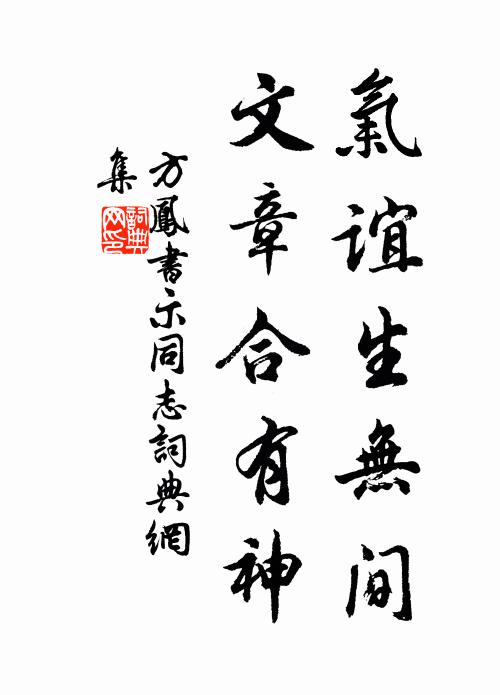 氣誼生無間
文章合有神
方鳳書示同志詞典網
集
詞典网印